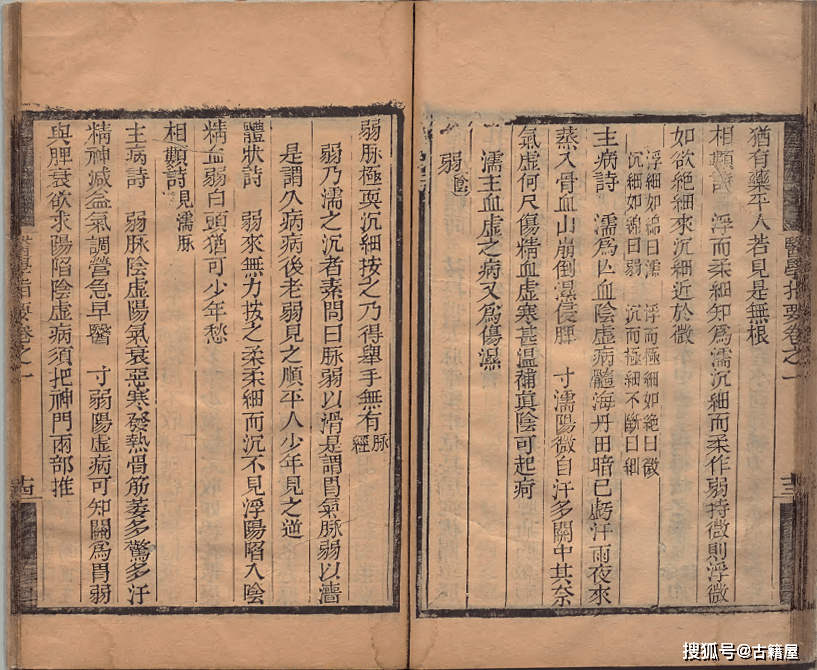 猶有藥平人若見是無根
相類詩　浮而柔細知為濡沉細而柔作弱持微則浮微
如欲絕細來沉細近於微
浮細如綿曰濡　浮而極細如絕曰微
沉細如綿曰弱　沉而極細不斷曰細
主病詩　濡為亾血陰虛病髓海丹田暗已虧汗雨夜來
蒸入骨血山崩倒濕侵脾　寸濡陽微自汗多關中其奈
氣虛何尺傷精血虛寒甚溫補真陰可起痾
濡主血虛之病又為傷濕
弱陰
弱脉極耎沉細按之乃得舉手無有脉
經
弱乃濡之沉者素問曰脉弱以滑是謂胃氣脉弱以濇
是謂久病病後老弱見之順平人少年見之逆
體狀詩　弱來無力按之柔柔細而沉不見浮陽陷入陰
精血弱白頭猶可少年愁
相類詩見濡脉
主病詩　弱脉陰虛陽氣衰惡寒發熱骨筋萎多驚多汗
精神減益氣調營急早醫　寸弱陽虛病可知關為胃弱
與脾衰欲求陽陷陰虛病須把神門兩部推
醫學指要卷之一
十三
醫學指要卷之一
十四
搜狐号@古籍屋